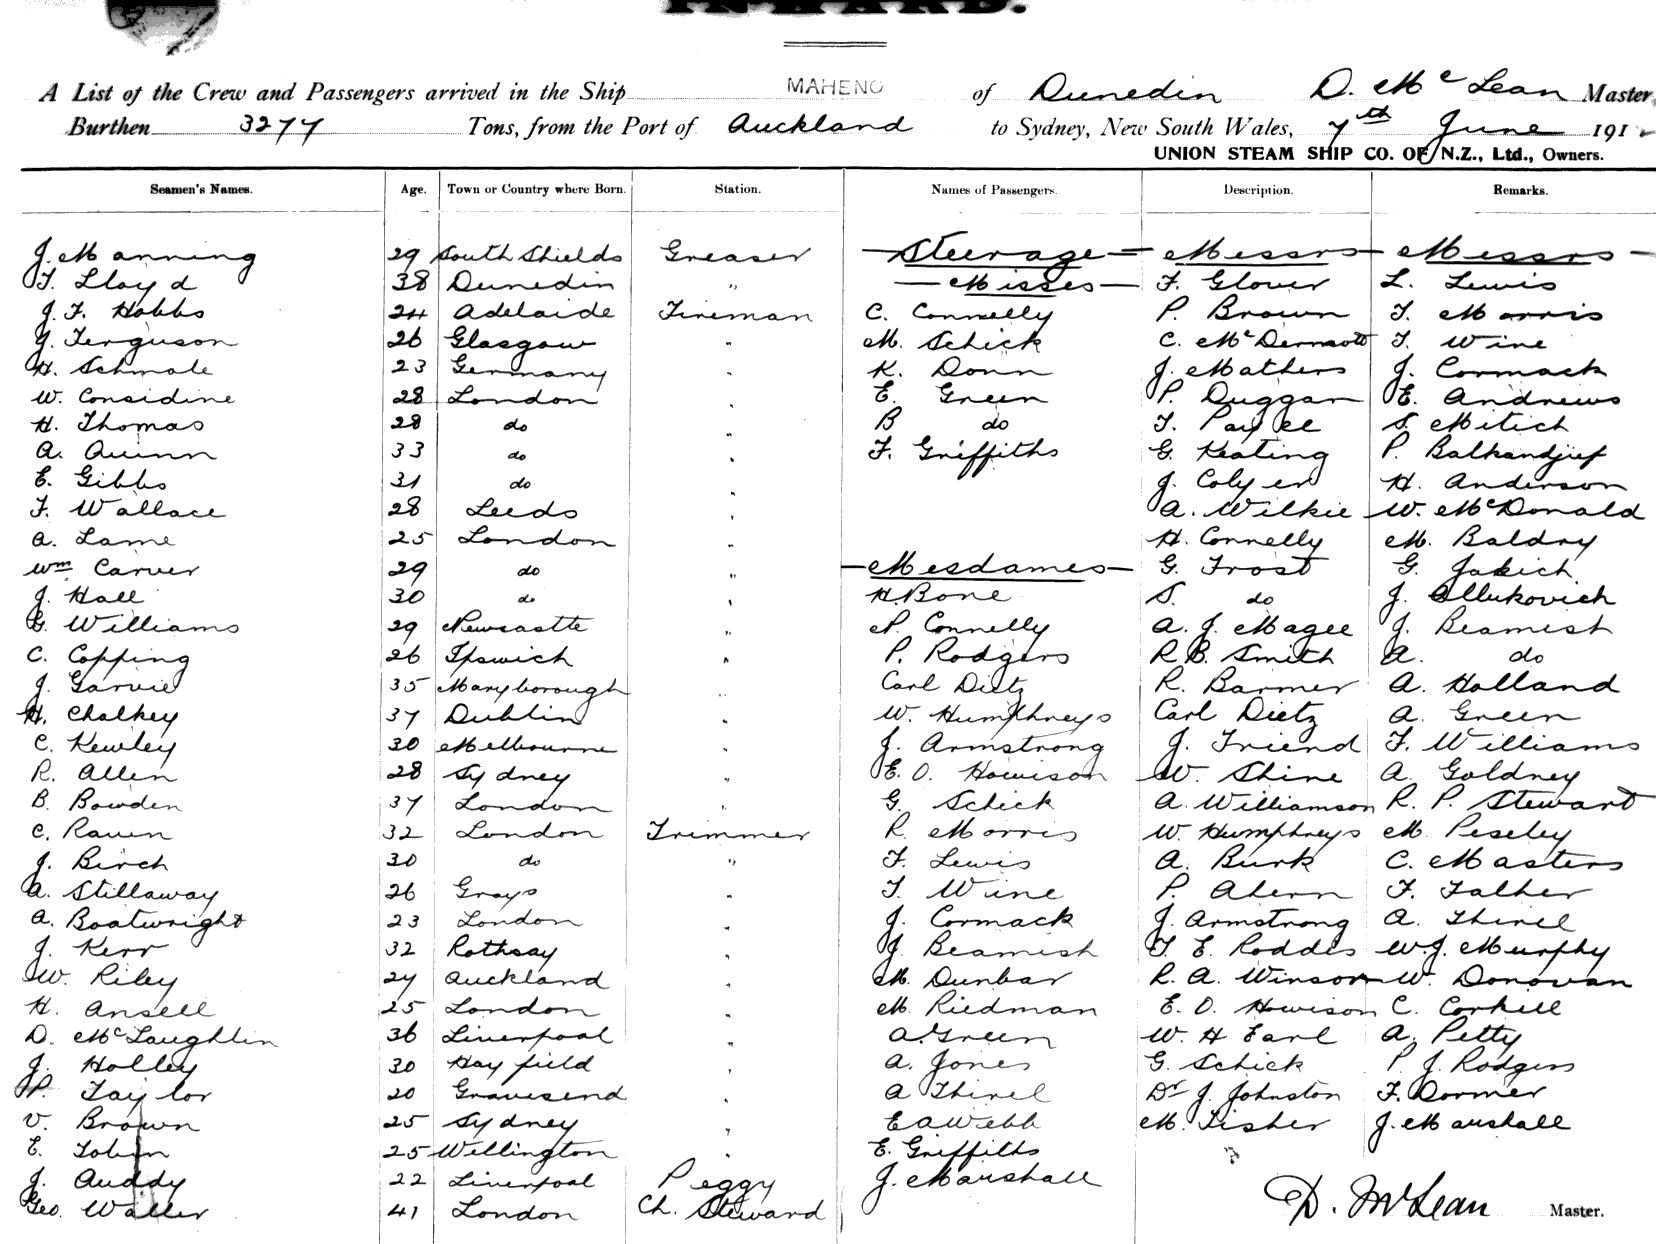 INWARD.
A List of the Crew and Passengers arrived in the Ship MAHENO of Dunedin D. McLean Master
Burthen 3277 Tons, from the Port of Auckland to Sydney, New South Wales, 7th June 191
UNION STEAM SHIP CO. OF N.Z., Ltd., Owners.
Seamen's Names. Age. Town or Country where Born. Station. Names of Passengers. Description. Remarks.
J. Manning 29 South Shields Greaser Steerage Messrs Messrs
T. Lloyd 38 Dunedin " Misses F. Glover L. Lewis
J. F. Hobbs 24 Adelaide Fireman C. Connelly P. Brown T. Morris
J. Ferguson 26 Glasgow " M. Schick C. McDermott T. Wine
H. Schmale 23 Germany " K. Donn J. Mathers J. Cormack
W. Considine 28 London " E. Green P. Duggan E. Andrews
H. Thomas 28 do " B do T. Payee S. Mitich
A. Quinn 33 do " F. Griffiths G. Keating P. Balkandjief
E. Gibbs 31 do " J. Colyer H. Anderson
F. Wallace 28 Leeds " A. Wilkie W. McDonald
A. Lame 25 London " H. Connelly M. Baldry
Wm Carver 29 do " Mesdames G. Frost G. Jakich
J. Hall 30 do " H. Bone S. do J.
G. Williams 29 Newcastle " P. Connelly A. J. Magee J. Beamish
C. Copping 26 Ipswich " P. Rodgers R. B. Smith A. do
J. Garvie 35 Maryborough " Carl Dietz R. Barmer A. Holland
H. Chalkey 37 Dublin " W. Humphreys Carl Dietz A. Green
C. Kewley 30 Melbourne " J. Armstrong J. Friend F. Williams
R. Allen 28 Sydney " E. O. Howison W. Shine A. Goldney
B. Bowden 37 London " G. Schick A. Williamson R. P. Stewart
C. Raven 32 London Trimmer R. Morris W. Humphreys M. Peseley
J. Birch 30 do " F. Lewis A. Burk C. Masters
A. Stillaway 26 Grays " T. Wine P. Ahern F. Falher
A. Boatwright 23 London " J. Cormack J. Armstrong A. Thirel
J. Kerr 32 Rothsay " J. Beamish T. E. Roddis W. J. Murphy
W. Riley 27 Auckland " M. Dunbar R. A. Winson W. Donovan
H. Ansell 25 London " M. Riedman E. O. Howison C. Corkill
D. McLaughlin 36 Liverpool " A. Green W. H Earl A. Petty
J. Holley 30 Hayfield " A. Jones G. Schick P. J. Rodgers
P. Taylor 20 Gravesend " A Thirel Dr J. Johnston F. Dormer
V. Brown 25 Sydney " E A Webb M. Fisher J. Marshall
E. Tobin 25 Wellington " E. Griffiths
J. Auddy 22 Liverpool Peggy J. Marshall
Geo. Waller 41 London Ch. Steward
D. McLean Master.